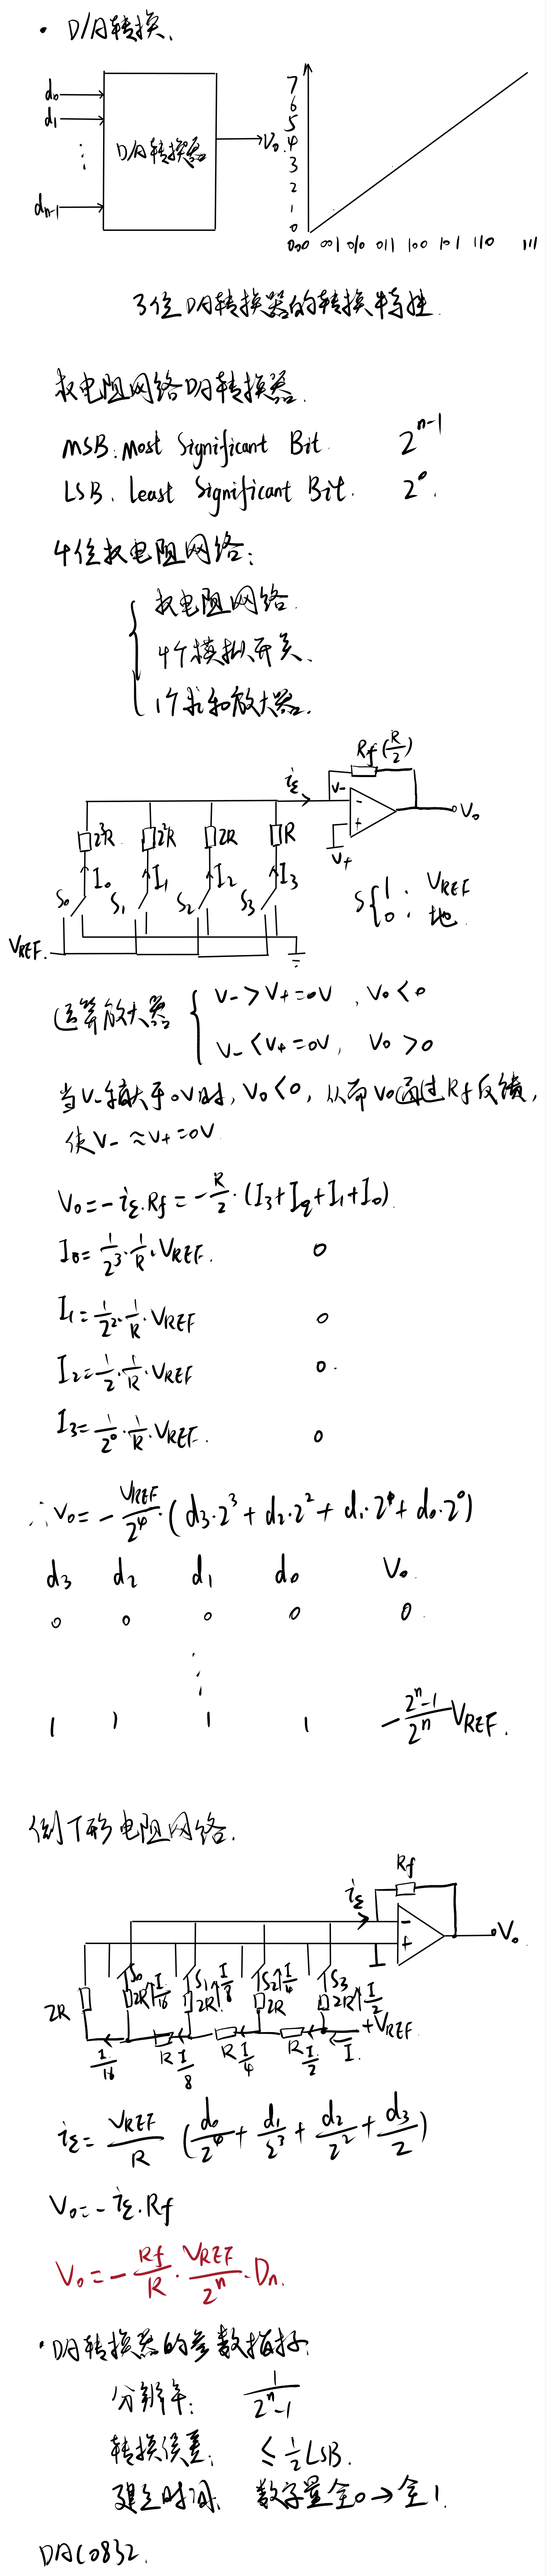 · D/A转换、
d₀
d₁
⋮
dn-1
D/A转换器
V₀
7
6
5
4
3
2
1
0
000 001 010 011 100 101 110 111
3位DA转换器的转换特性.
权电阻网络DA转换器.
MSB: Most Significant Bit. 2^(n-1)
LSB. Least Significant Bit. 2^0.
4位权电阻网络:
权电阻网络.
4个模拟开关、
1个求和放大器.
Rf(R/2)
iΣ V- - + V₀
2³R 2²R 2R R
V+
I₀ I₁ I₂ I₃
S₀ S₁ S₂ S₃
S { 1: VREF
0: 地
VREF.
运算放大器 { V->V+=0V, V₀<0
V-<V+=0V, V₀>0
当V-稍大于0V时, V₀<0, 从而V₀通过Rf反馈,
使V-≈V+=0V
V₀=-iΣ.Rf=-R/2·(I₃+I₂+I₁+I₀).
I₀=1/2³·1/R·VREF. 0
I₁=1/2²·1/R·VREF 0
I₂=1/2·1/R·VREF 0.
I₃=1/2⁰·1/R·VREF. 0
∴V₀=-VREF/2⁴·(d₃·2³+d₂·2²+d₁·2¹+d₀·2⁰)
d₃ d₂ d₁ d₀ V₀
0 0 0 0 0.
⋮
1 1 1 1 -(2ⁿ-1)/2ⁿ VREF.
倒T形电阻网络.
Rf
iΣ - + V₀
S₀ S₁ S₂ S₃
2R 2R I/16 2R I/8 2R I/4 2R I/2
+VREF
I/16 R I/8 R I/4 R I/2 I.
iΣ=VREF/R (d₀/2⁴+d₁/2³+d₂/2²+d₃/2)
V₀=-iΣ.Rf
V₀=-Rf/R·VREF/2ⁿ·Dn.
·DA转换器的参数指标:
分辨率: 1/(2ⁿ-1)
转换误差: ≤1/2LSB.
建立时间: 数字量全0→全1.
DAC0832.